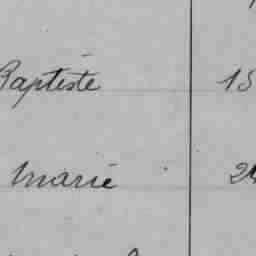 Baptiste 15
Marie